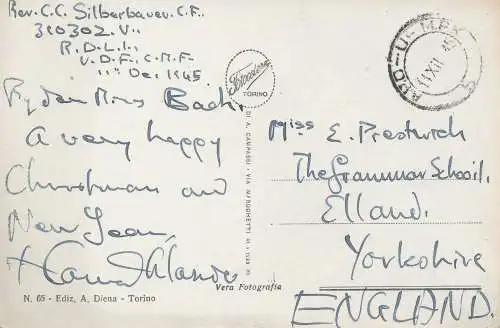 Rev. C.C. Silberbauer. C.F..
310302.V..
R.D.L.I.,
U.D.F., C.M.F.
11th Dec 1945.
My dear Miss
A very happy
Christmas and
New Year,
Fotocelere
TORINO
11 XII 45
DI A. CAMPASSI - VIA
Miss E. Prestwich
The Grammar School.
Elland.
Yorkshire
ENGLAND.
Vera Fotografia
N. 65 - Ediz, A, Diena - Torino